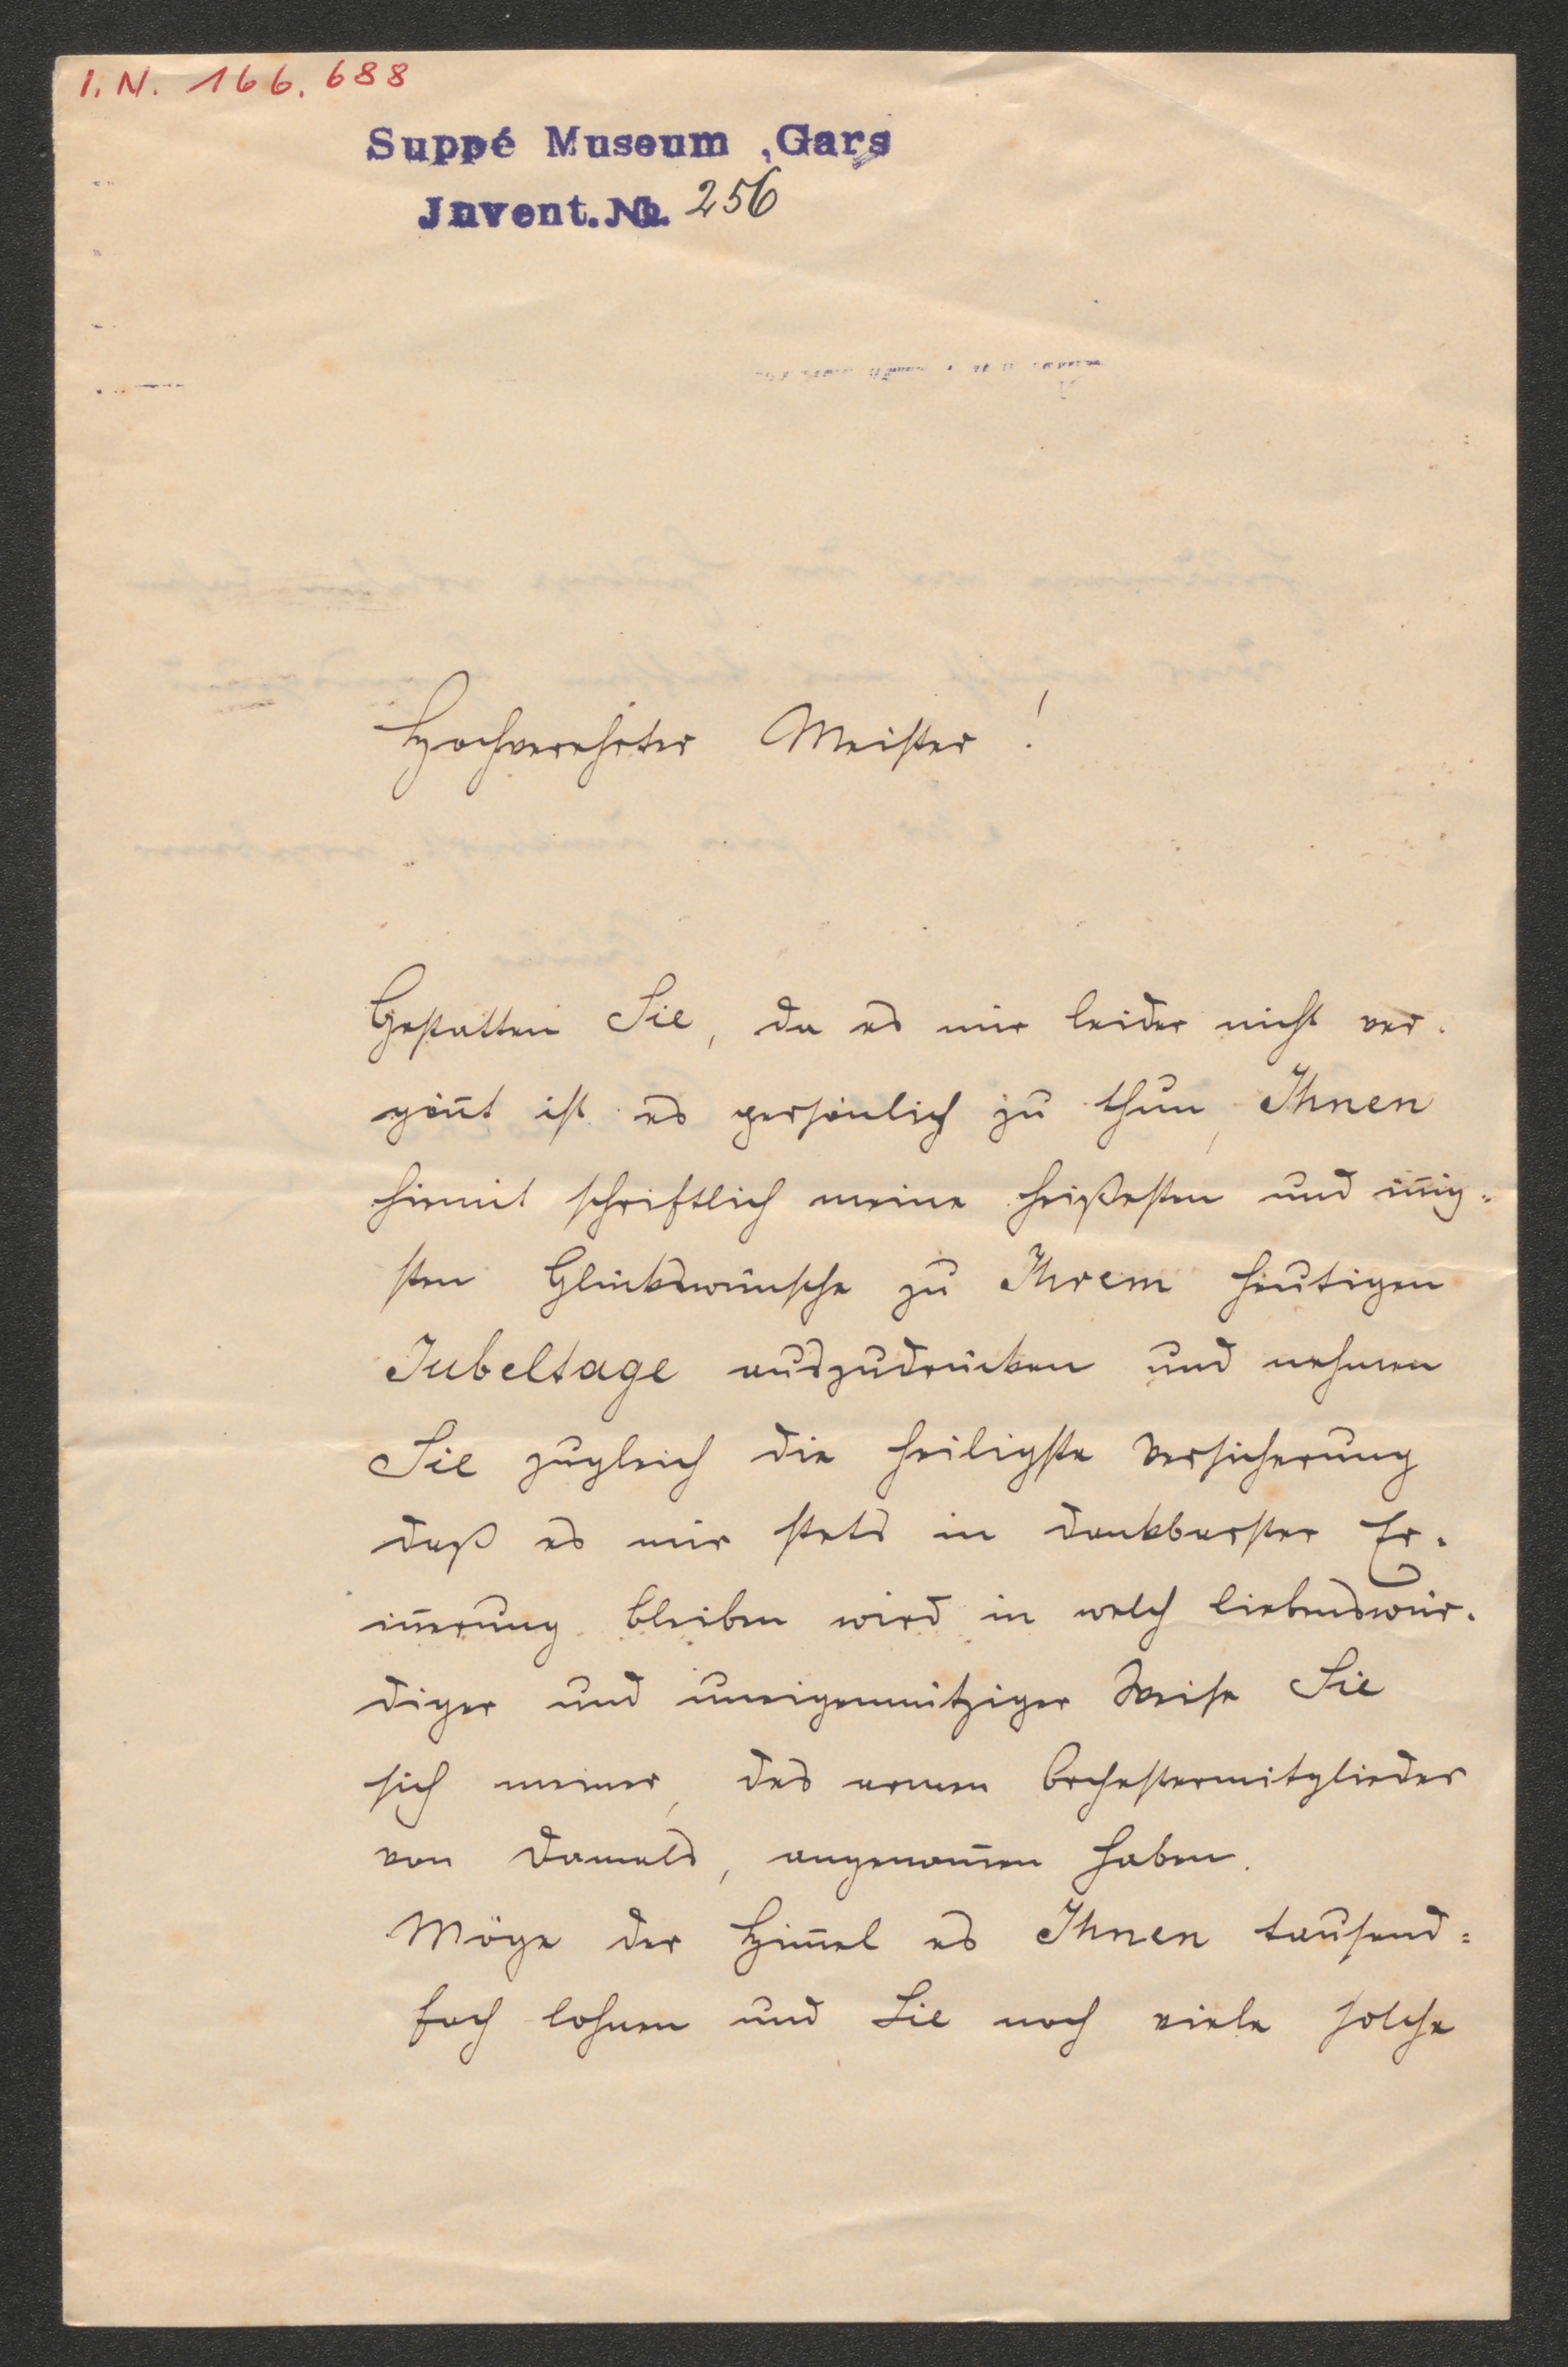 I. N. 166.688
Suppé Museum, Gars
Jnvent. No. 256
Hochverehrter Meister!
Gestatten Sie, da es mir leider nicht ver-
gön̄t ist es persönlich zu thun, Ihnen
hiemit schriftlich meine heißesten und in̄ig-
sten Glückwünsche zu Ihrem heutigen
Jubeltage auszudrücken und nehmen
Sie zugleich die heiligste Versicherung
daß es mir stets in dankbarster Er-
in̄erung bleiben wird in welch liebenswür-
diger und uneigennütziger Weise Sie
sich meiner, des armen Orchestermitglieder
von damals, angenom̄en haben.
Möge der Him̄el es Ihnen tausend=
fach lohnen und Sie noch viele solche